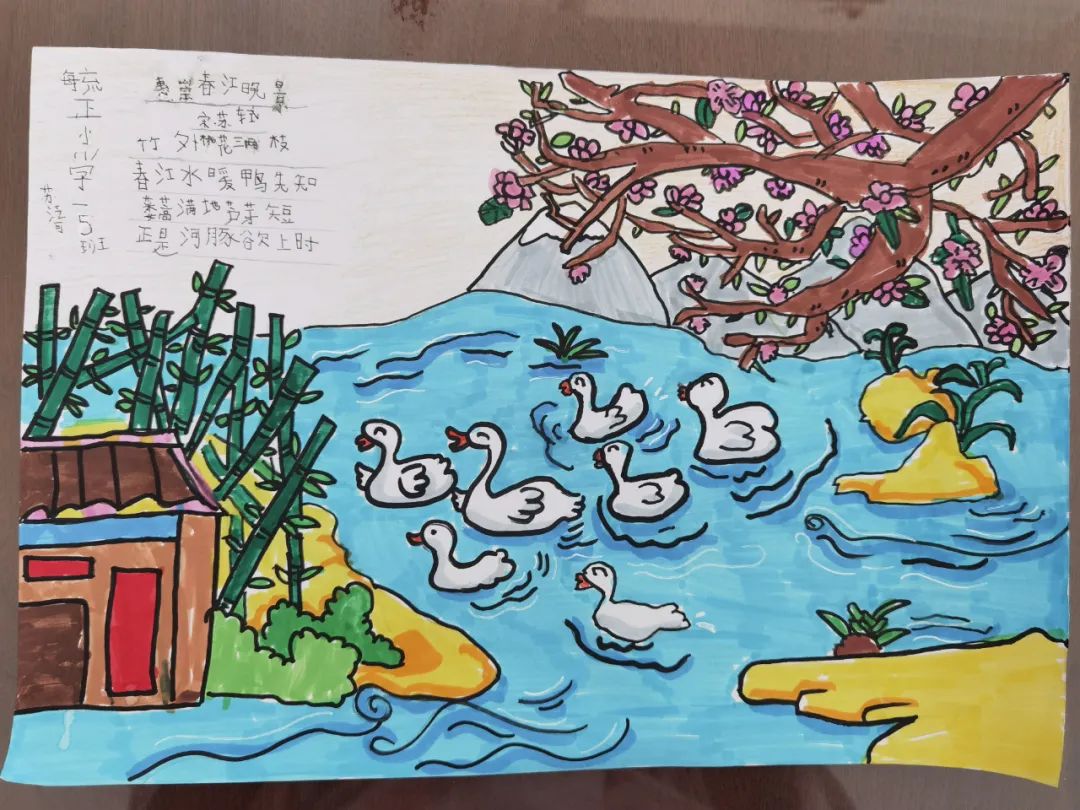 毓正小学一5班
苏
惠崇春江晚景
宋苏轼
竹外桃花三两枝
春江水暖鸭先知
蒌蒿满地芦芽短
正是河豚欲上时